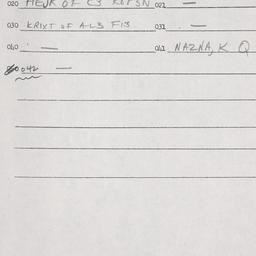 020 HEJK OF C3 KOPSN 021 —
030 KRIXT OF A-L3 FIB 031 —
040 — 041 NAZNA, K Q
042 —